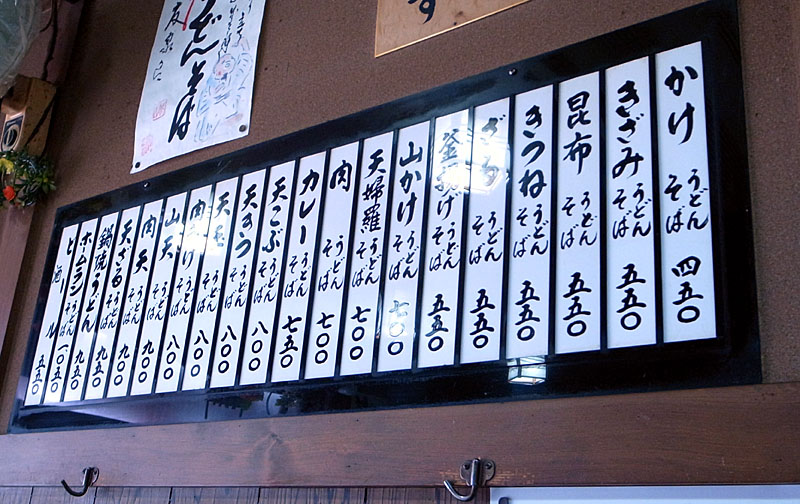 うどんそば
す
かけ うどん そば 四五〇
きざみ うどん そば 五五〇
昆布 うどん そば 五五〇
きつね うどん そば 五五〇
ざる うどん そば 五五〇
釜揚げ うどん そば 五五〇
山かけ うどん そば 七〇〇
天婦羅 うどん そば 七〇〇
肉 うどん そば 七〇〇
カレー うどん そば 七五〇
天こぶ うどん そば 八〇〇
天きつ うどん そば 八〇〇
天玉 うどん そば 八〇〇
うどん そば 八〇〇
山天 うどん そば 八〇〇
肉天 うどん そば 九〇〇
天ざる うどん そば 九〇〇
鍋焼うどん 九五〇
ホームラン うどん そば 九五〇
一〇五〇
ビール 五五〇